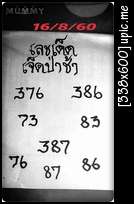 MUMMY
16/8/60
เลขเด็ด
เจ็ดป่าช้า
376 386
73 83
387
76 87 86
[338x600] upic.me